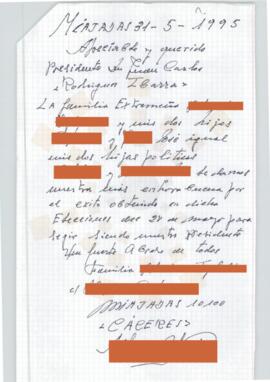 MIATADAS 31-5-ñ1995
Apreciable y querido
Presidente Sr Juan Carlos
«Rodriguez IBarra»
LA familia Extremeña
y mis dos hijos
y José igual
mis dos hijas politicas
y de damos
nuestra más enhora buena por
el exito obtenido en dichas
Elecciones del 28 de mayo para
segir siendo nuestro Presidente
Un fuerte ABrazo de todos
Familia
c/
MIATADAS 10100
«CÁCERES»